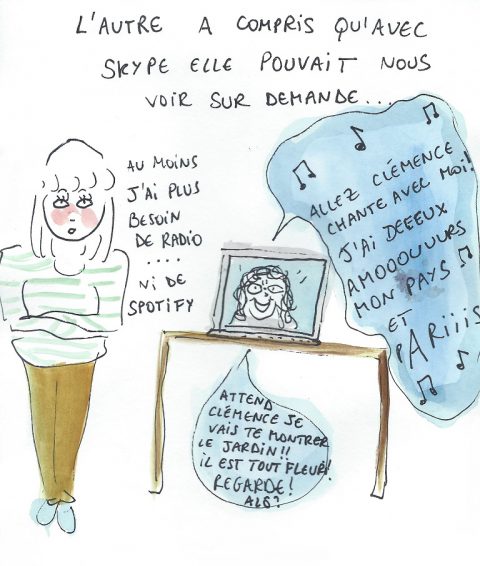 L'AUTRE A COMPRIS QU'AVEC
SKYPE ELLE POUVAIT NOUS
VOIR SUR DEMANDE...
AU MOINS
J'AI PLUS
BESOIN
DE RADIO
....
NI DE
SPOTIFY
ALLEZ CLÉMENCE
CHANTE AVEC MOI!
J'AI DEEEUX
AMOOOUUURS
MON PAYS
ET
PARiiiS
ATTEND
CLÉMENCE JE
VAIS TE MONTRER
LE JARDIN!!
iL EST TOUT FLEURI!
REGARDE!